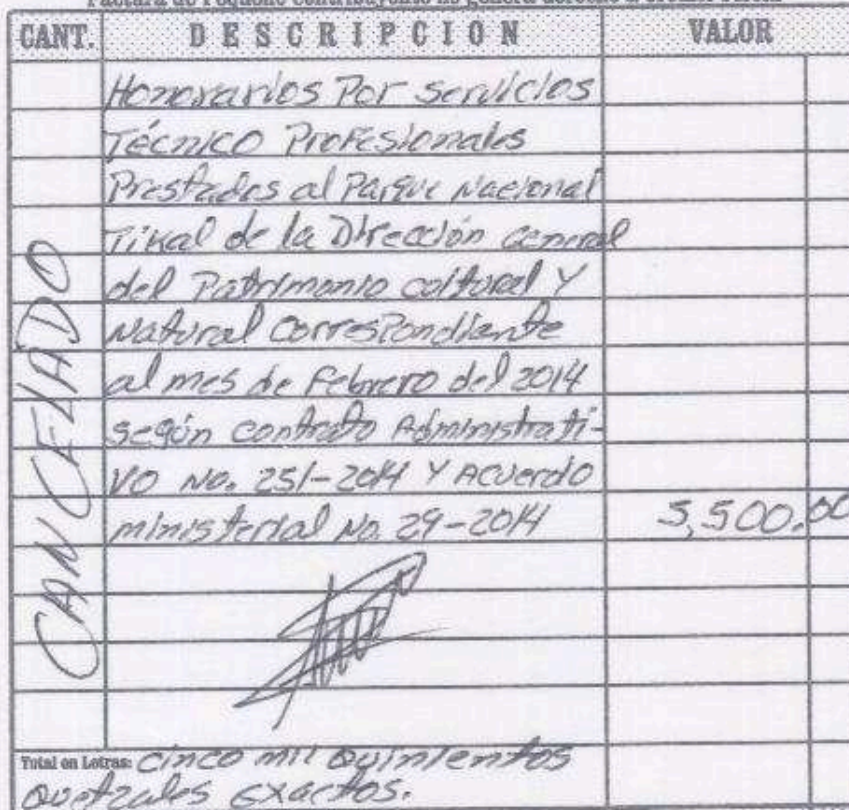 Factura de Pequeño Contribuyente no genera derecho a Crédito Fiscal
CANT. DESCRIPCION VALOR
Honorarios Por Servicios
Técnico Profesionales
Prestados al Parque Nacional
Tikal de la Dirección General
del Patrimonio coltural Y
Natural Correspondiente
al mes de Febrero del 2014
según contrato Administrati-
vo No. 251-2014 Y Acuerdo
ministerial No. 29-2014 5,500.00
CANCELADO
Total en Letras: Cinco mil Quinientos
Quetzales Exactos.